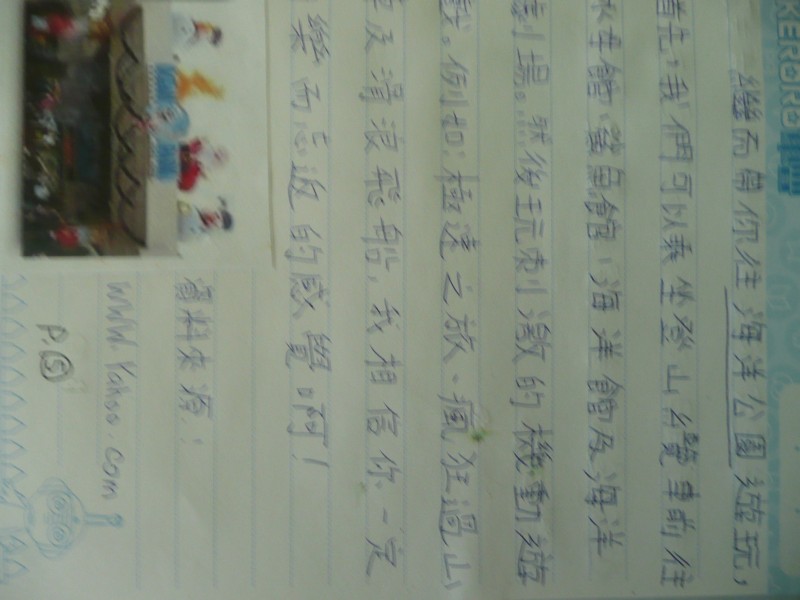 KERORO
繼而帶你往海洋公園遊玩，
首先，我們可以乘坐登山纜車前往
水母館、金魚館、海洋館及海洋
劇場。……然後玩刺激的機動遊
戲。例如：極速之旅、瘋狂過山
車及滑浪飛船，我相信你一定
樂而忘返的感覺啊！
資料來源：
www.Yahoo.com
P.⑤